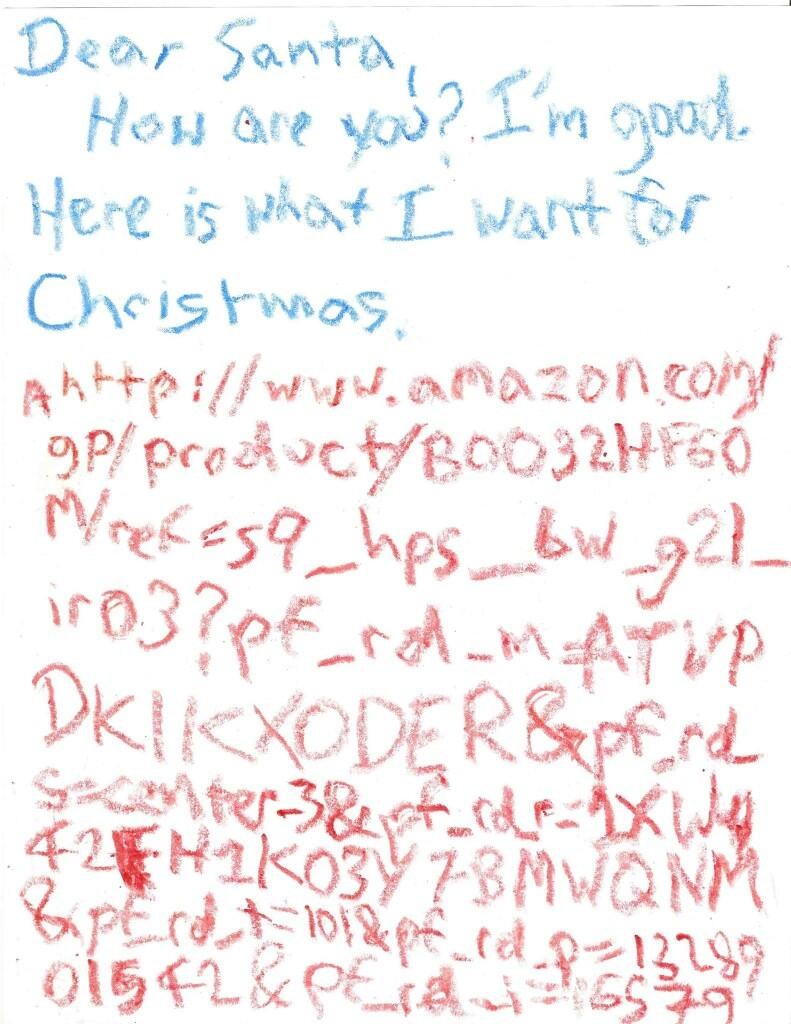 Dear Santa,
How are you? I'm good.
Here is what I want for
Christmas.
Ahttp://www.amazon.com/
gp/product/B0032HF60
M/ref=s9_hps_bw_g21_
ir03?pf_rd_m=ATVP
DKIKX0DER&pf_rd_
s=center-3&pf_rd_r=1XWHY
42FH1K03Y7BMWQNM
&pf_rd_t=101&pf_rd_p=13289
01542&pf_rd_i=16579